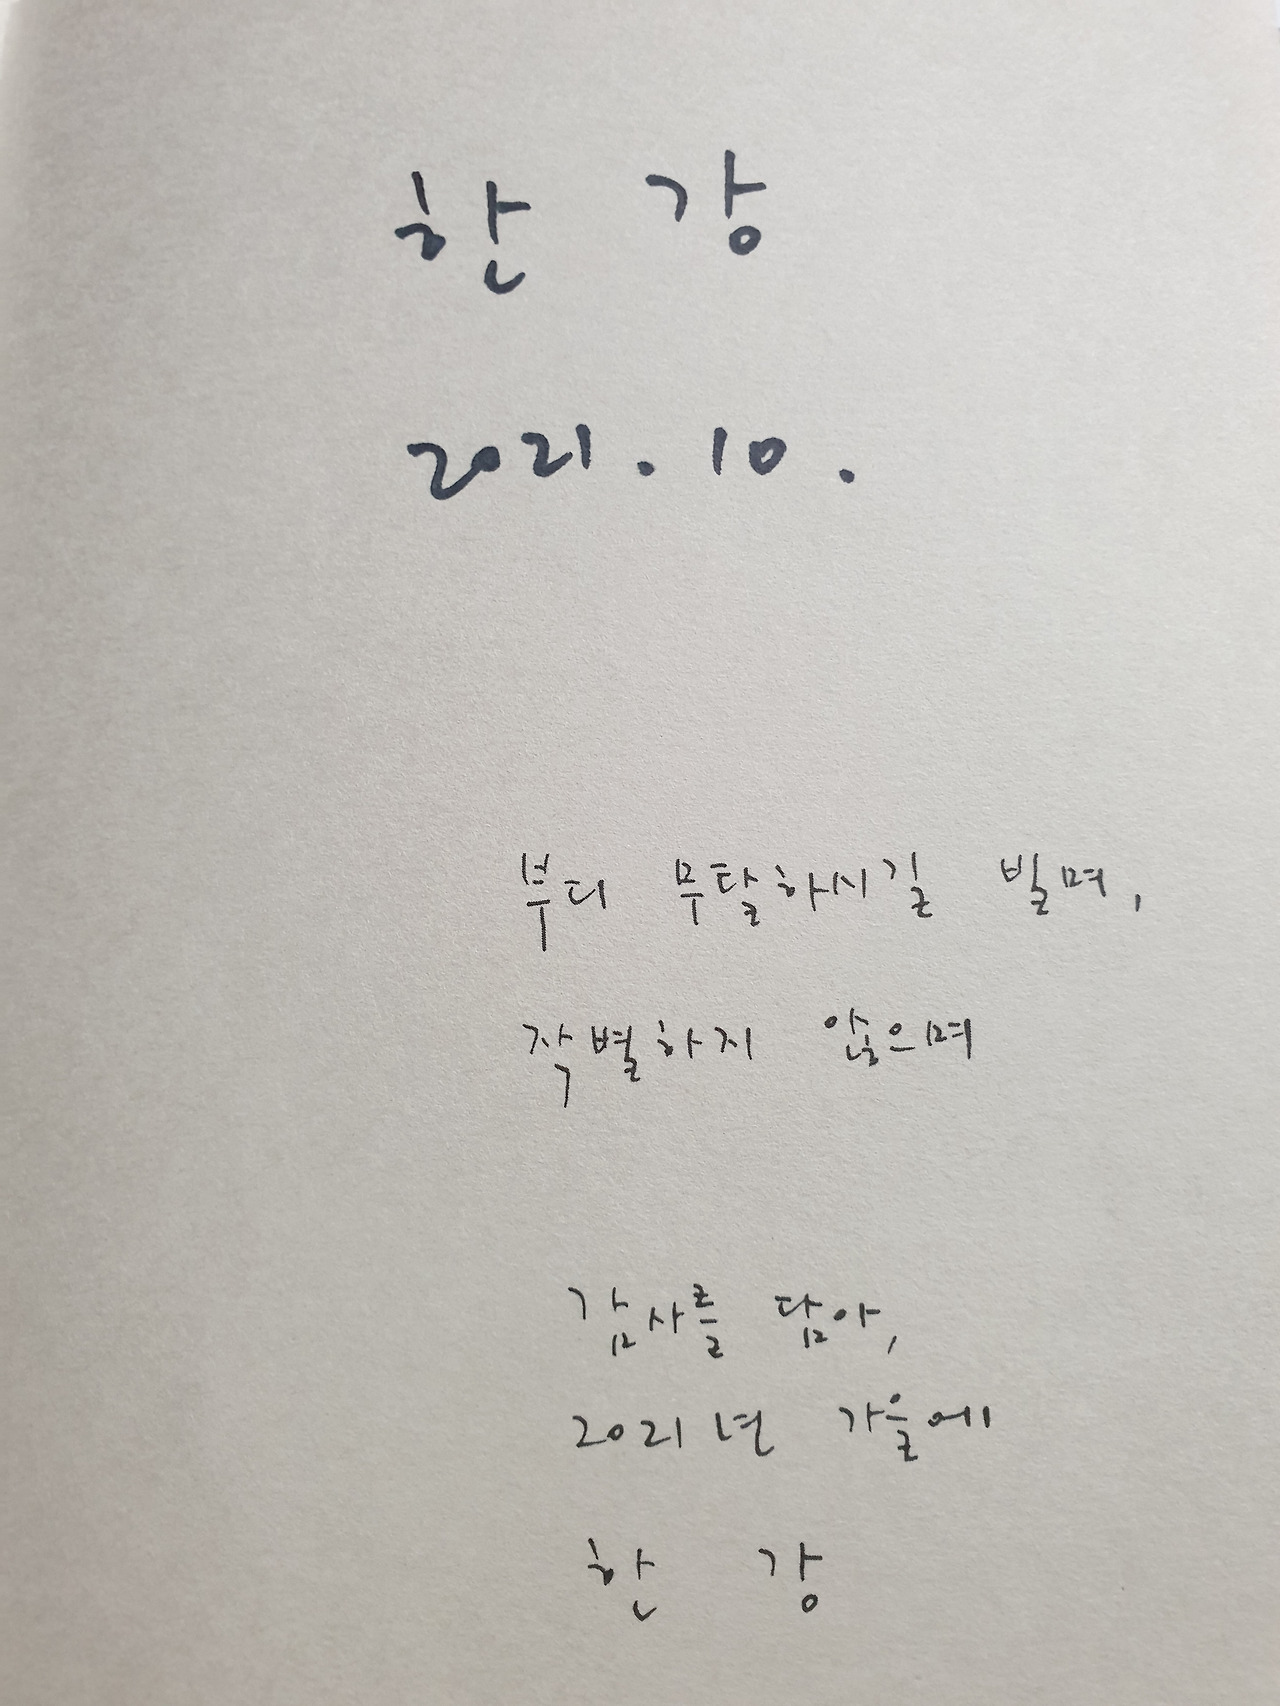 한 강
2021. 10.
부디 무탈하시길 빌며,
작별하지 않으며
감사를 담아,
2021년 가을에
한 강